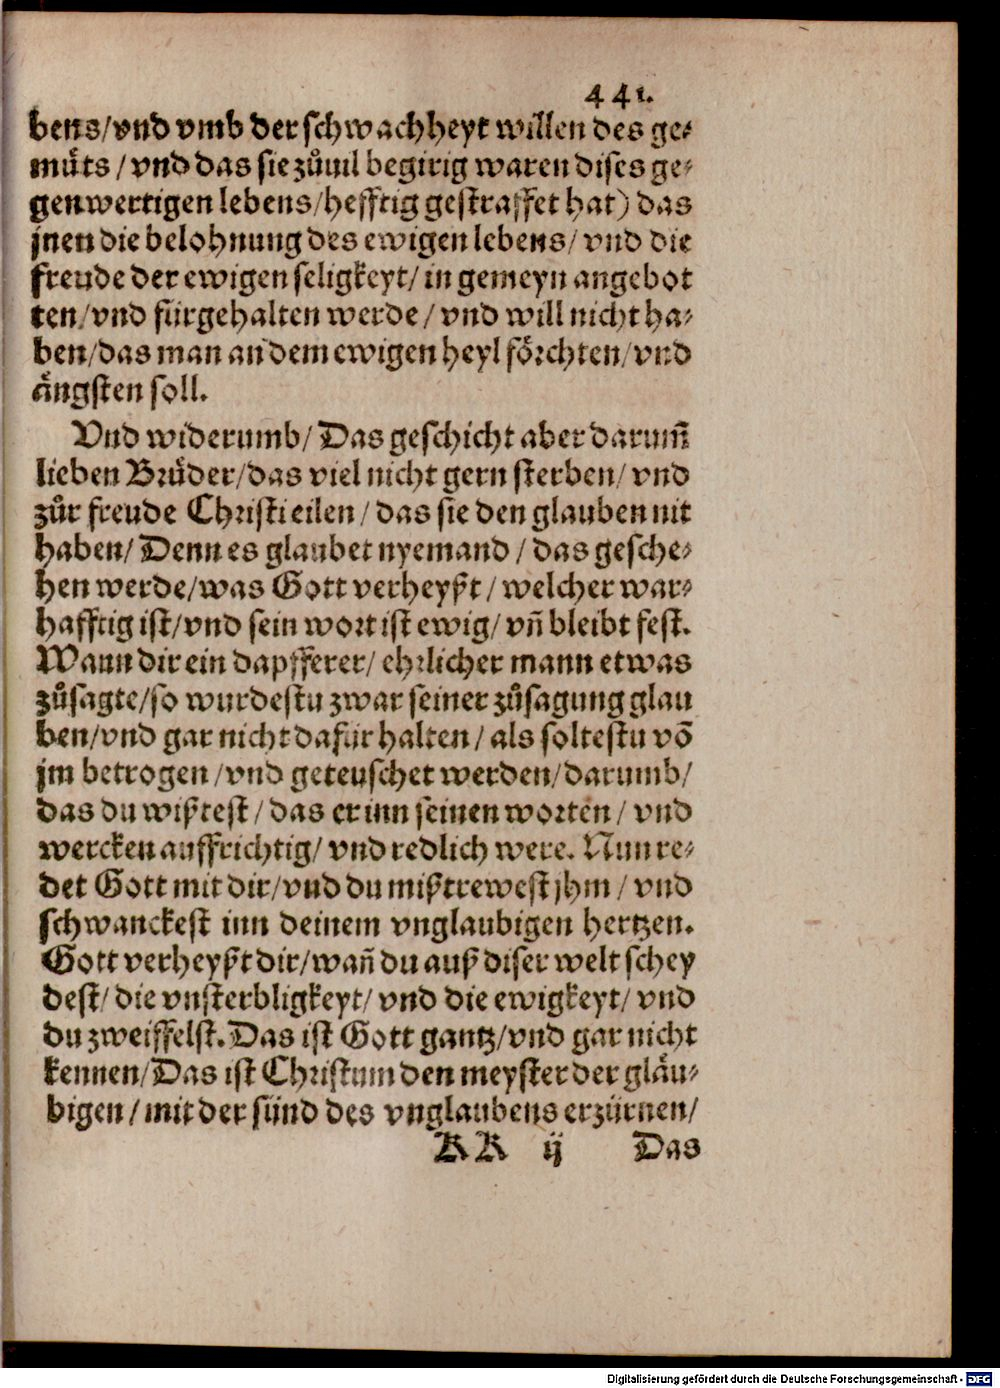 441.
bens/vnd vmb der schwachheyt willen des ge⸗
muͤts/vnd das sie zůuil begirig waren dises ge⸗
genwertigen lebens/hefftig gestraffet hat) das
jnen die belohnung des ewigen lebens/vnd die
freude der ewigen seligkeyt/in gemeyn angebot
ten/vnd fürgehalten werde/vnd will nicht ha⸗
ben/das man an dem ewigen heyl foͤrchten/vnd
aͤngsten soll.
Vnd widerumb/Das geschicht aber darum̃
lieben Bruͤder/das viel nicht gern sterben/vnd
zůr freude Christi eilen/das sie den glauben nit
haben/Denn es glaubet nyemand/das gesche⸗
hen werde/was Gott verheyßt/welcher war⸗
hafftig ist/vnd sein wort ist ewig/vñ bleibt fest.
Wann dir ein dapfferer/ehrlicher mann etwas
zůsagte/so wurdestu zwar seiner zůsagung glau
ben/vnd gar nicht dafür halten/als soltestu võ
jm betrogen/vnd geteuschet werden/darumb/
das du wißtest/das er inn seinen worten/vnd
wercken auffrichtig/vnd redlich were. Nun re⸗
det Gott mit dir/vnd du mißtrewest jhm/vnd
schwanckest inn deinem vnglaubigen hertzen.
Gott verheyßt dir/wañ du auß diser welt schey
dest/die vnsterbligkeyt/vnd die ewigkeyt/vnd
du zweiffelst. Das ist Gott gantz/vnd gar nicht
kennen/Das ist Christum den meyster der glaͤu⸗
bigen/mit der sünd des vnglaubens erzürnen/
KK ij Das
Digitalisierung gefördert durch die Deutsche Forschungsgemeinschaft - DFG